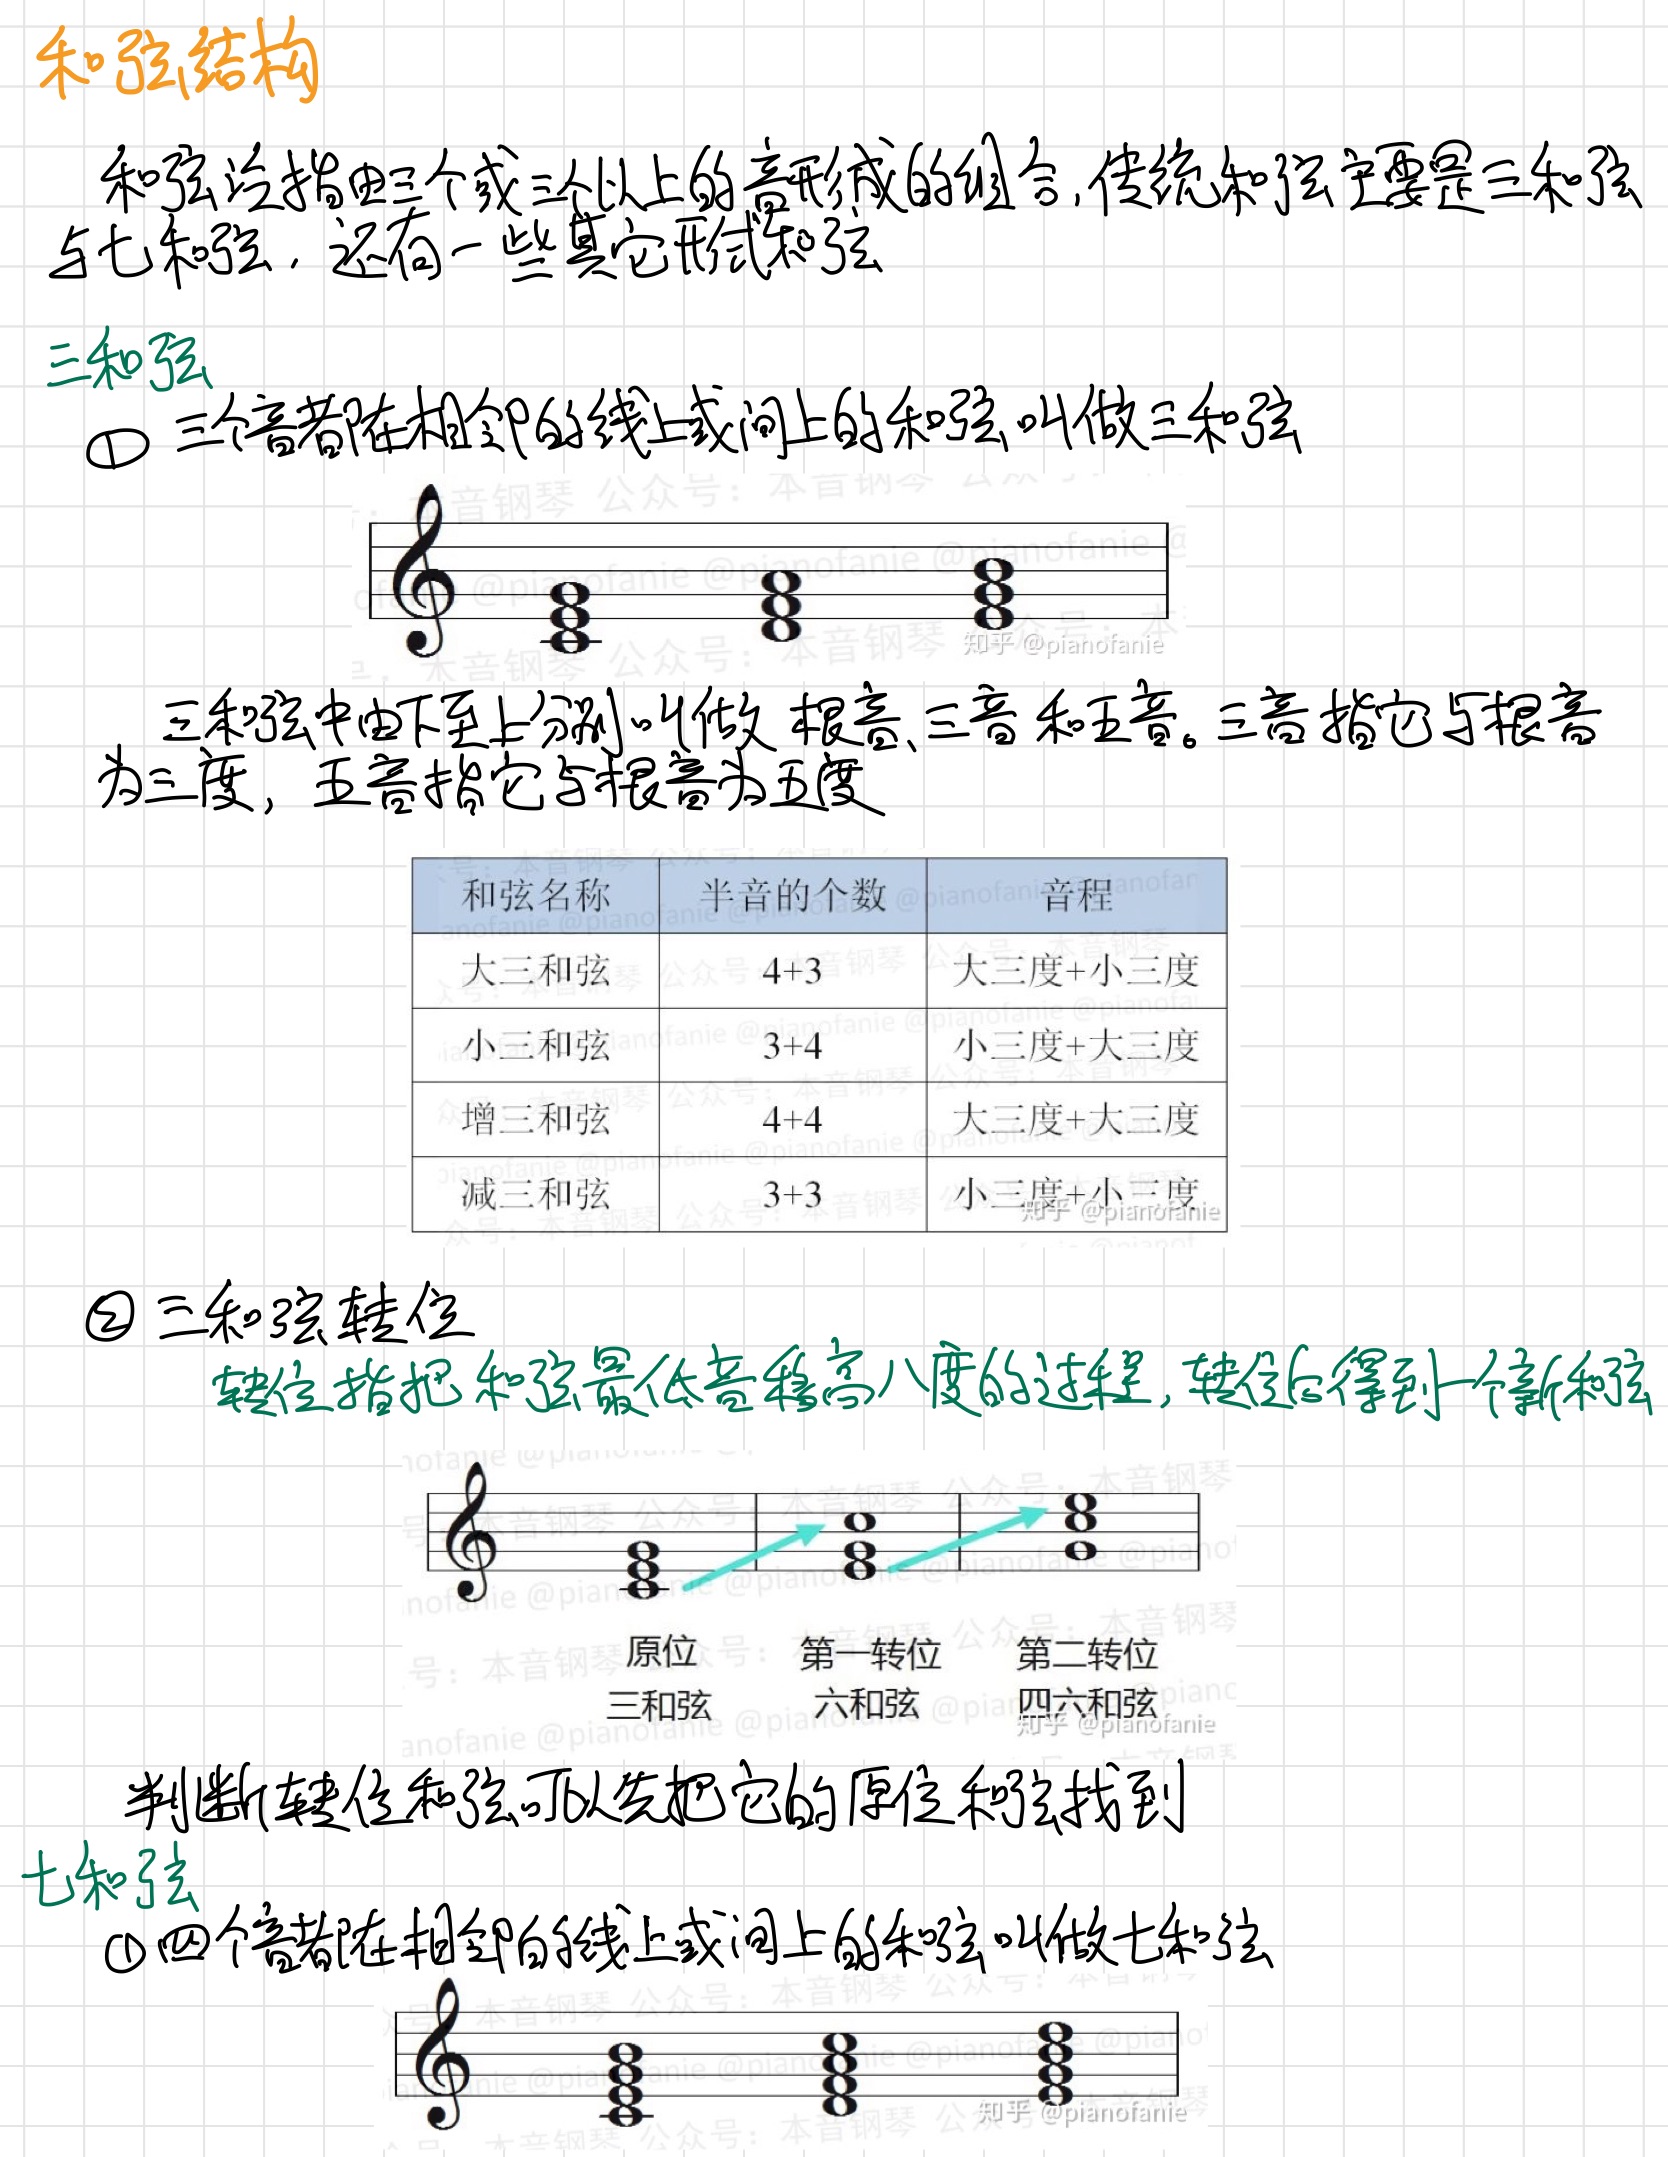 和弦结构
和弦泛指由三个或三个以上的音形成的组合,传统和弦主要是三和弦
与七和弦，还有一些其它形式和弦
三和弦
① 三个音都在相邻的线上或间上的和弦叫做三和弦
本音钢琴 公众号：本音钢琴
@pianofanie @pianofanie @pianofanie
本音钢琴 公众号：本音钢琴
知乎 @pianofanie
三和弦中由下至上分别叫做 根音、三音和五音。三音指它与根音
为三度，五音指它与根音为五度
和弦名称 半音的个数 音程
大三和弦 4+3 大三度+小三度
小三和弦 3+4 小三度+大三度
增三和弦 4+4 大三度+大三度
减三和弦 3+3 小三度+小三度
知乎 @pianofanie
② 三和弦转位
转位指把和弦最低音移高八度的过程,转位后得到一个新和弦
原位 第一转位 第二转位
三和弦 六和弦 四六和弦
知乎 @pianofanie
判断转位和弦可以先把它的原位和弦找到
七和弦
① 四个音都在相邻的线上或间上的和弦叫做七和弦
知乎 @pianofanie